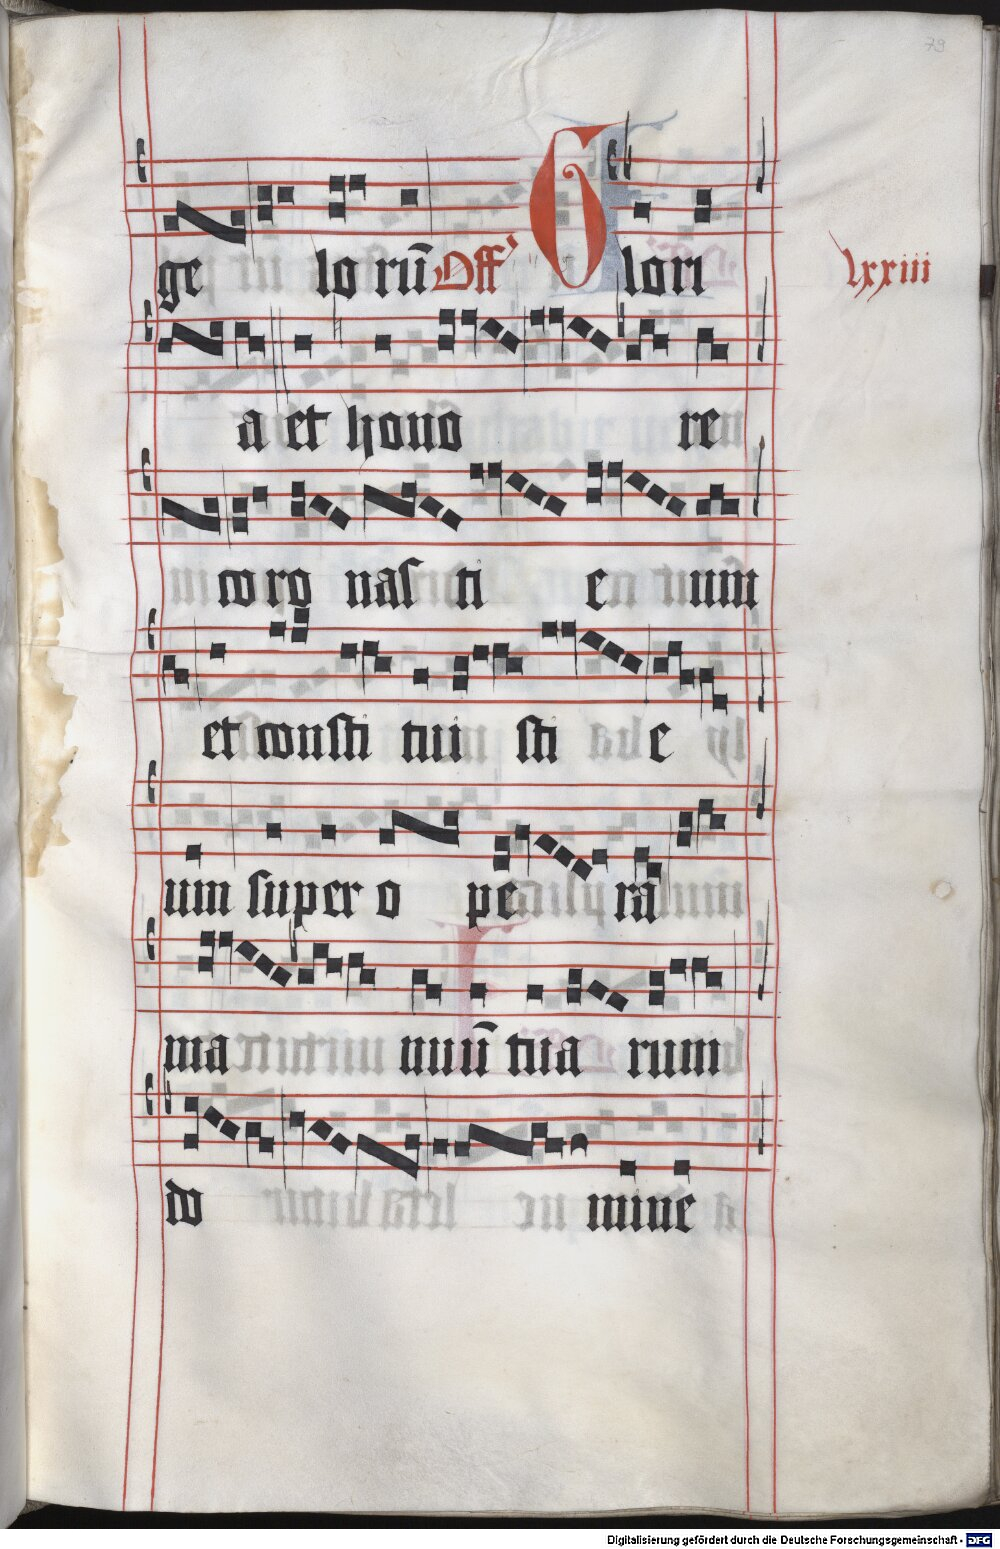 79
ge lo rū Off Glori
lxxiii
a et hono re
coro nas ti e um
et consti tui sti e
um super o pe ra
ma nuū tua rum
do mine
Digitalisierung gefördert durch die Deutsche Forschungsgemeinschaft - DFG